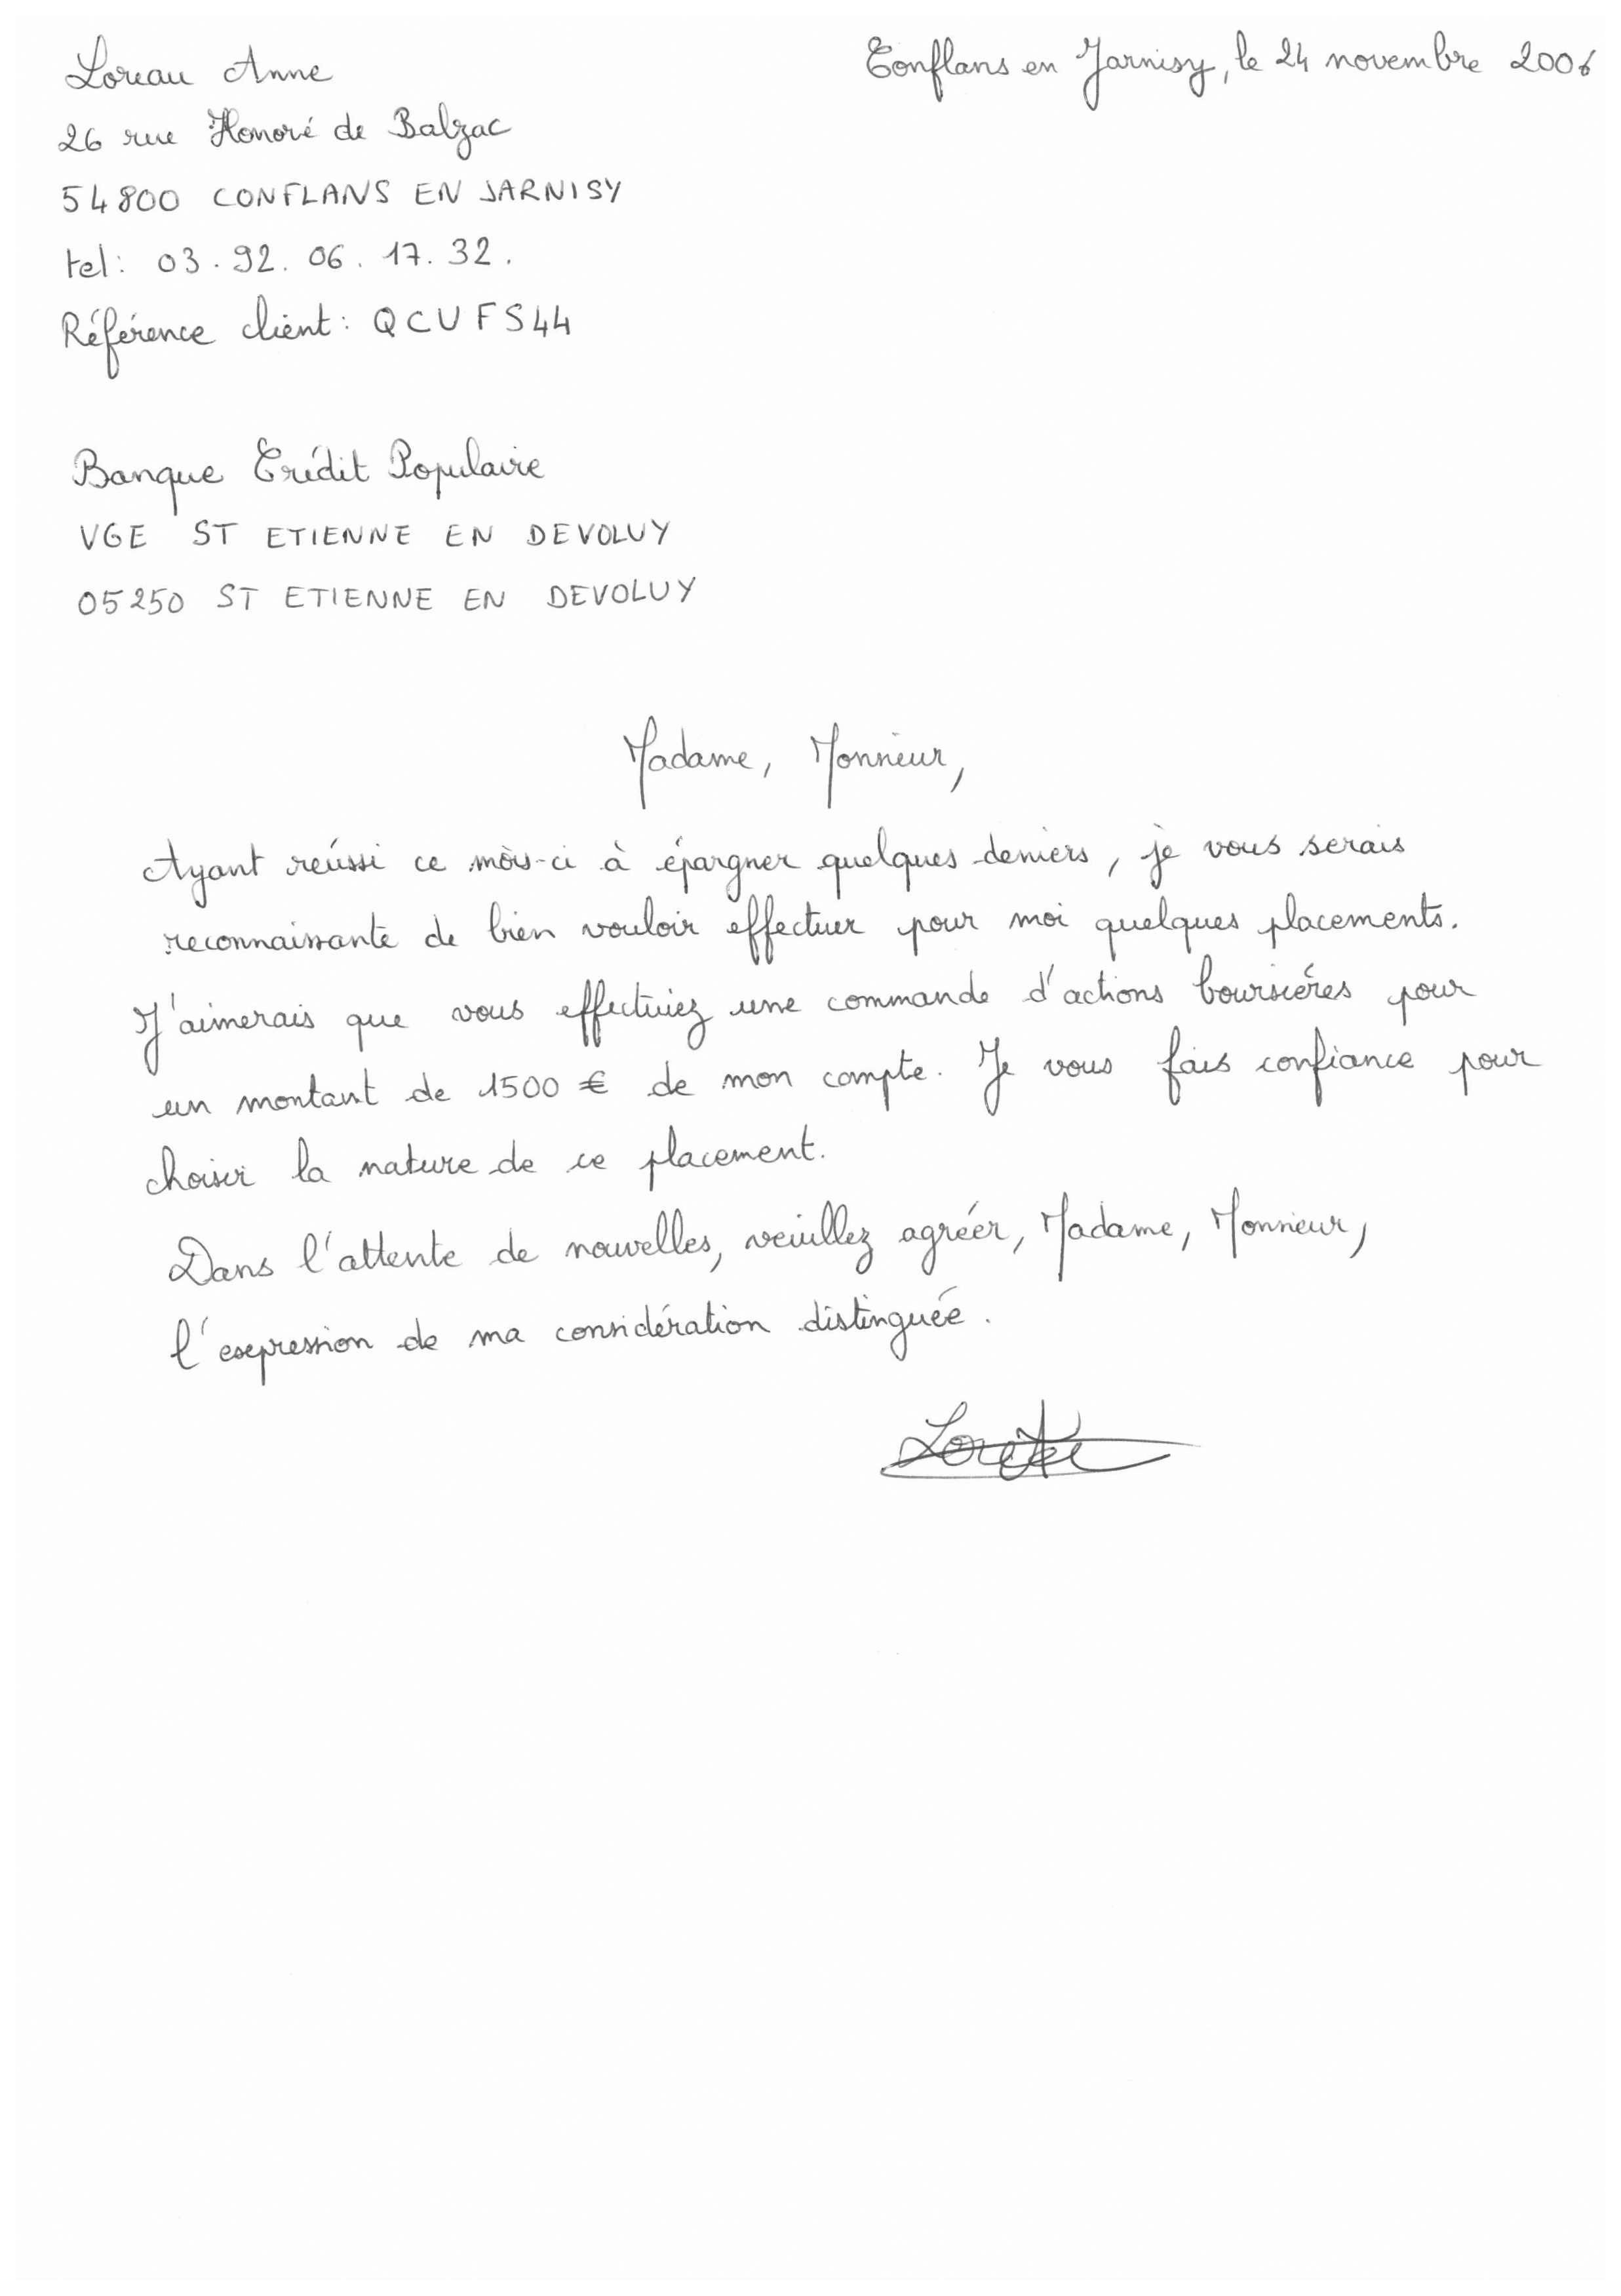 Loreau Anne
Conflans en Jarnisy, le 24 novembre 2006
26 rue Honoré de Balzac
54800 CONFLANS EN JARNISY
tel: 03.92.06.17.32.
Référence client: QCUFS44
Banque Crédit Populaire
VGE ST ETIENNE EN DEVOLUY
05250 ST ETIENNE EN DEVOLUY
Madame, Monsieur,
Ayant réussi ce mois-ci à épargner quelques deniers, je vous serais
reconnaissante de bien vouloir effectuer pour moi quelques placements.
J'aimerais que vous effectuiez une commande d'actions boursières pour
un montant de 1500 € de mon compte. Je vous fais confiance pour
choisir la nature de ce placement.
Dans l'attente de nouvelles, veuillez agréer, Madame, Monsieur,
l'expression de ma considération distinguée.